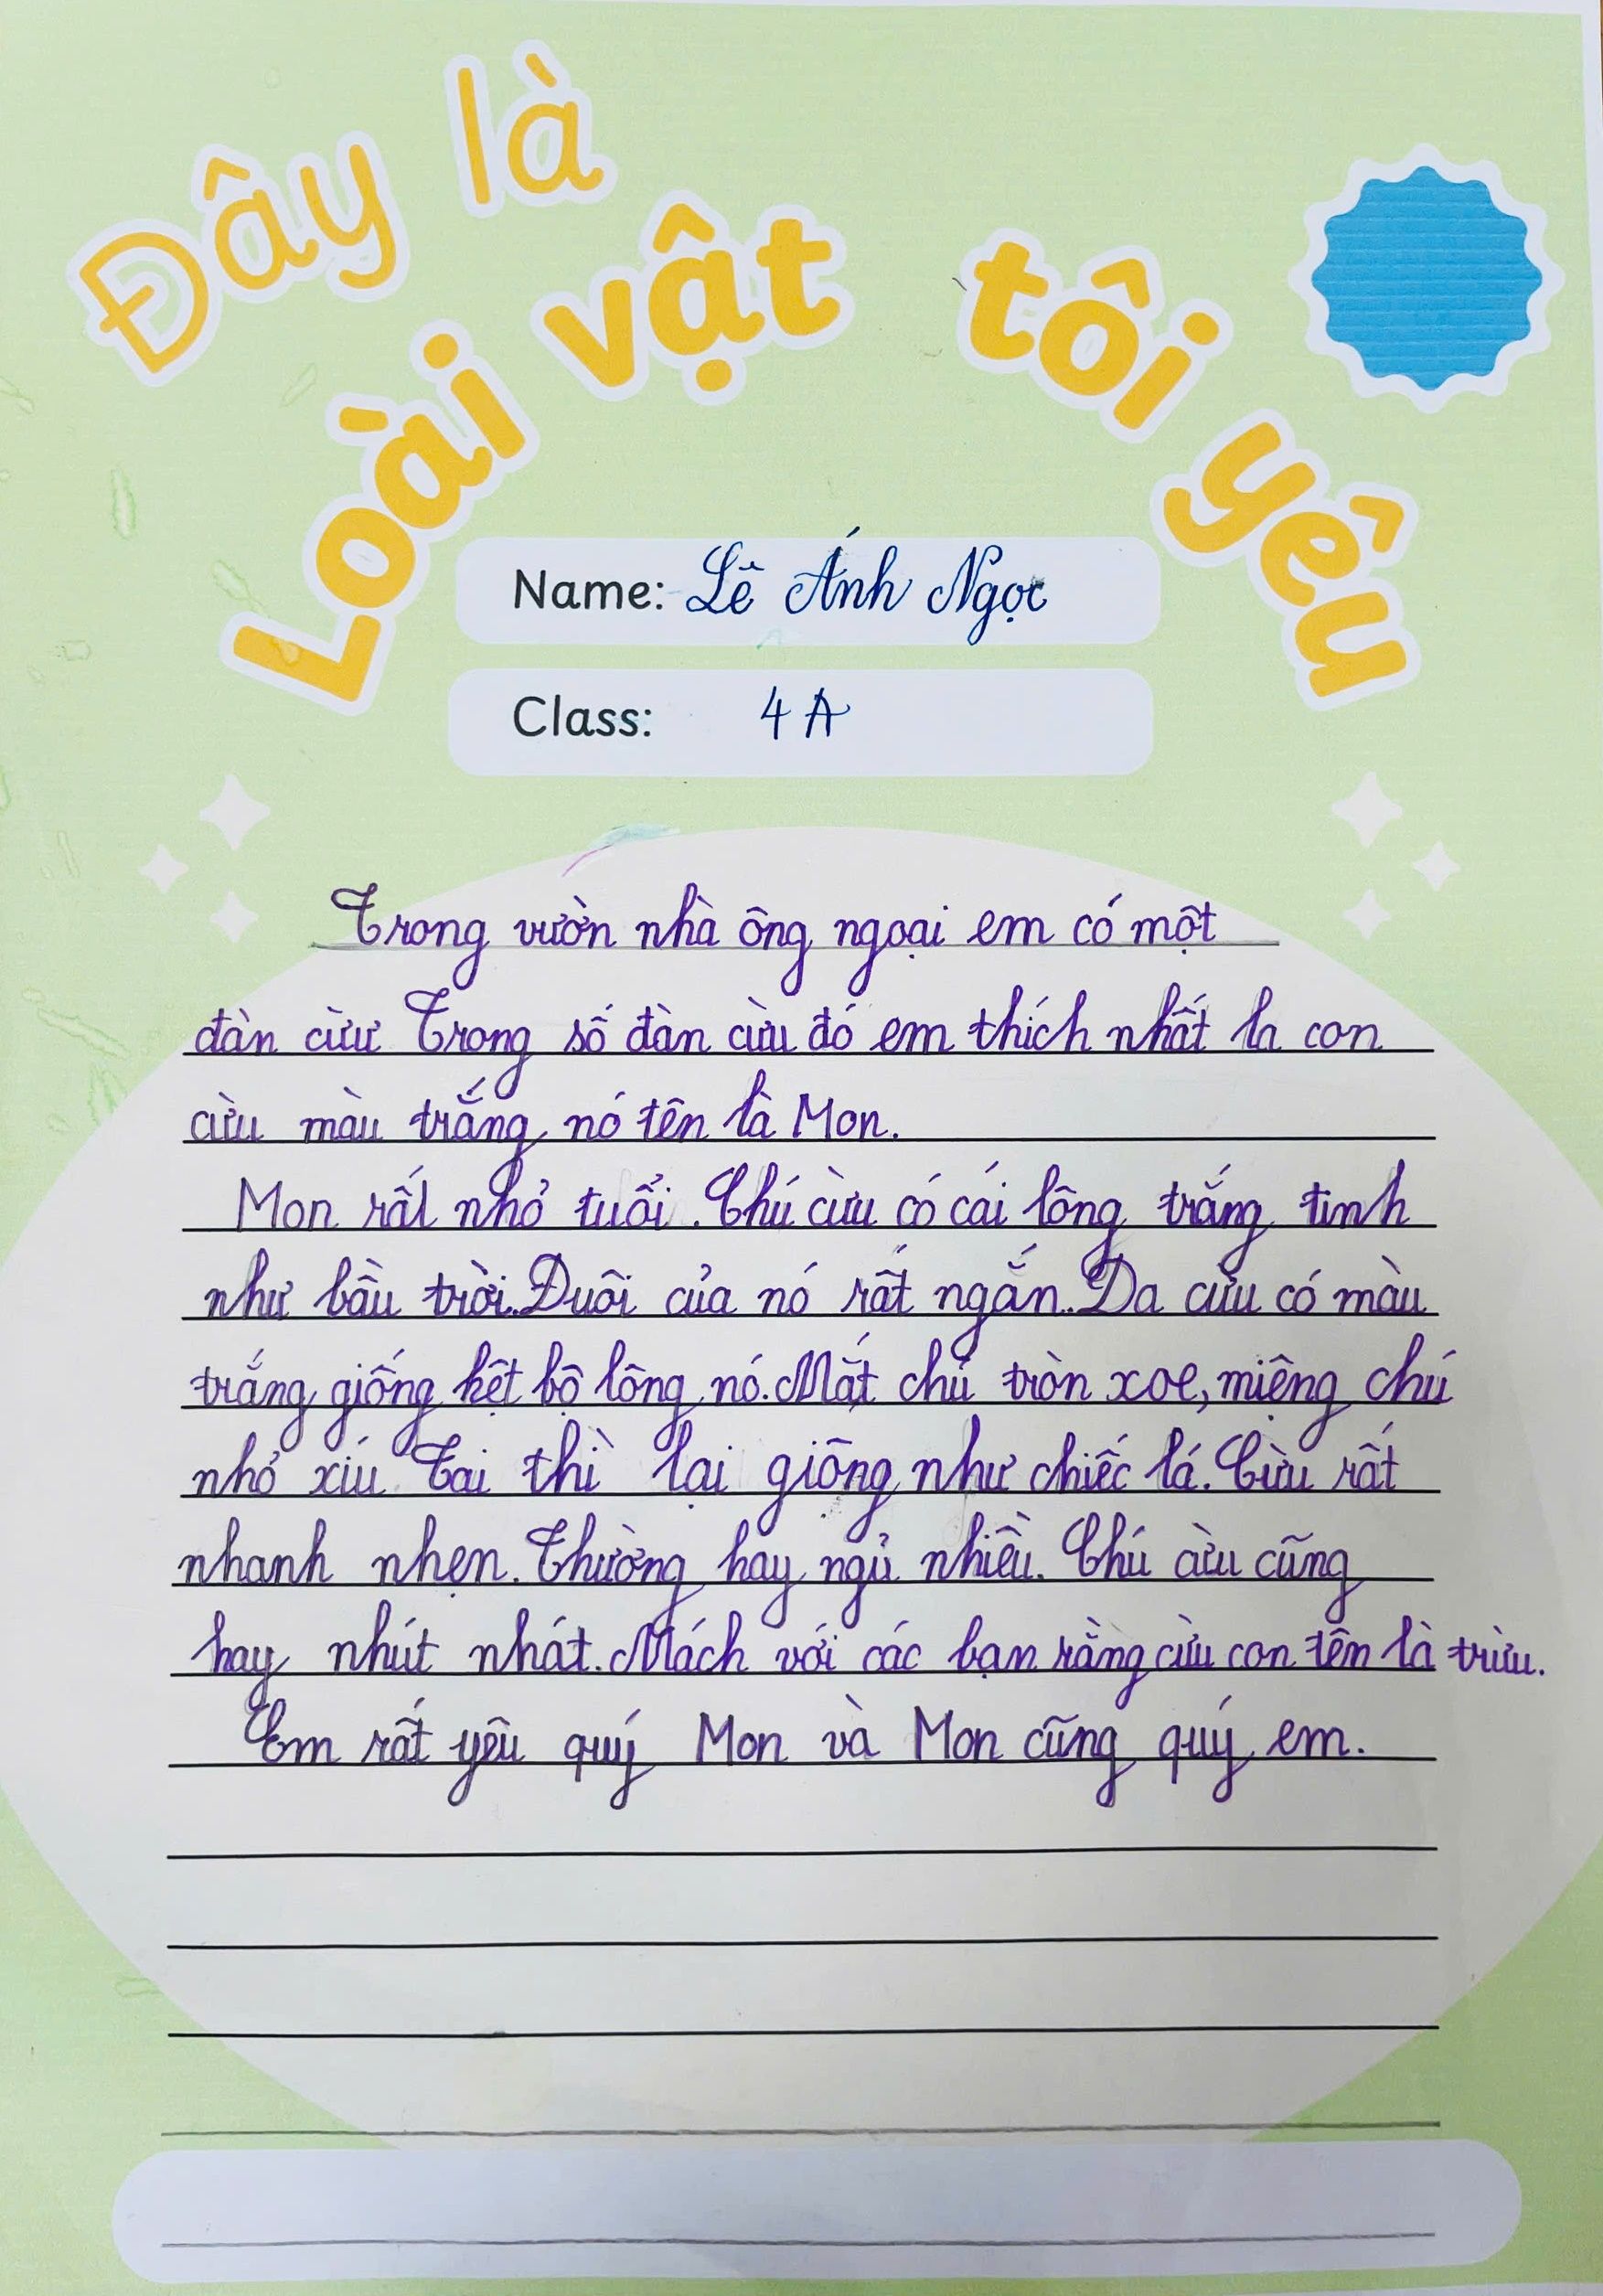 Đây là
Loài vật tôi yêu
Name: Lê Ánh Ngọc
Class: 4A
Trong vườn nhà ông ngoại em có một
đàn cừu Trong số đàn cừu đó em thích nhất la con
cừu màu trắng nó tên là Mon.
Mon rất nhỏ tuổi. Chú cừu có cái lông trắng tinh
như bầu trời. Đuôi của nó rất ngắn. Da cừu có màu
trắng giống hệt bộ lông nó. Mắt chú tròn xoe, miệng chú
nhỏ xíu. Tai thì lại giống như chiếc lá. Cừu rất
nhanh nhẹn. Thường hay ngủ nhiều. Chú cừu cũng
hay nhút nhát. Mách với các bạn rằng cừu con tên là trừu.
Em rất yêu quý Mon và Mon cũng quý em.